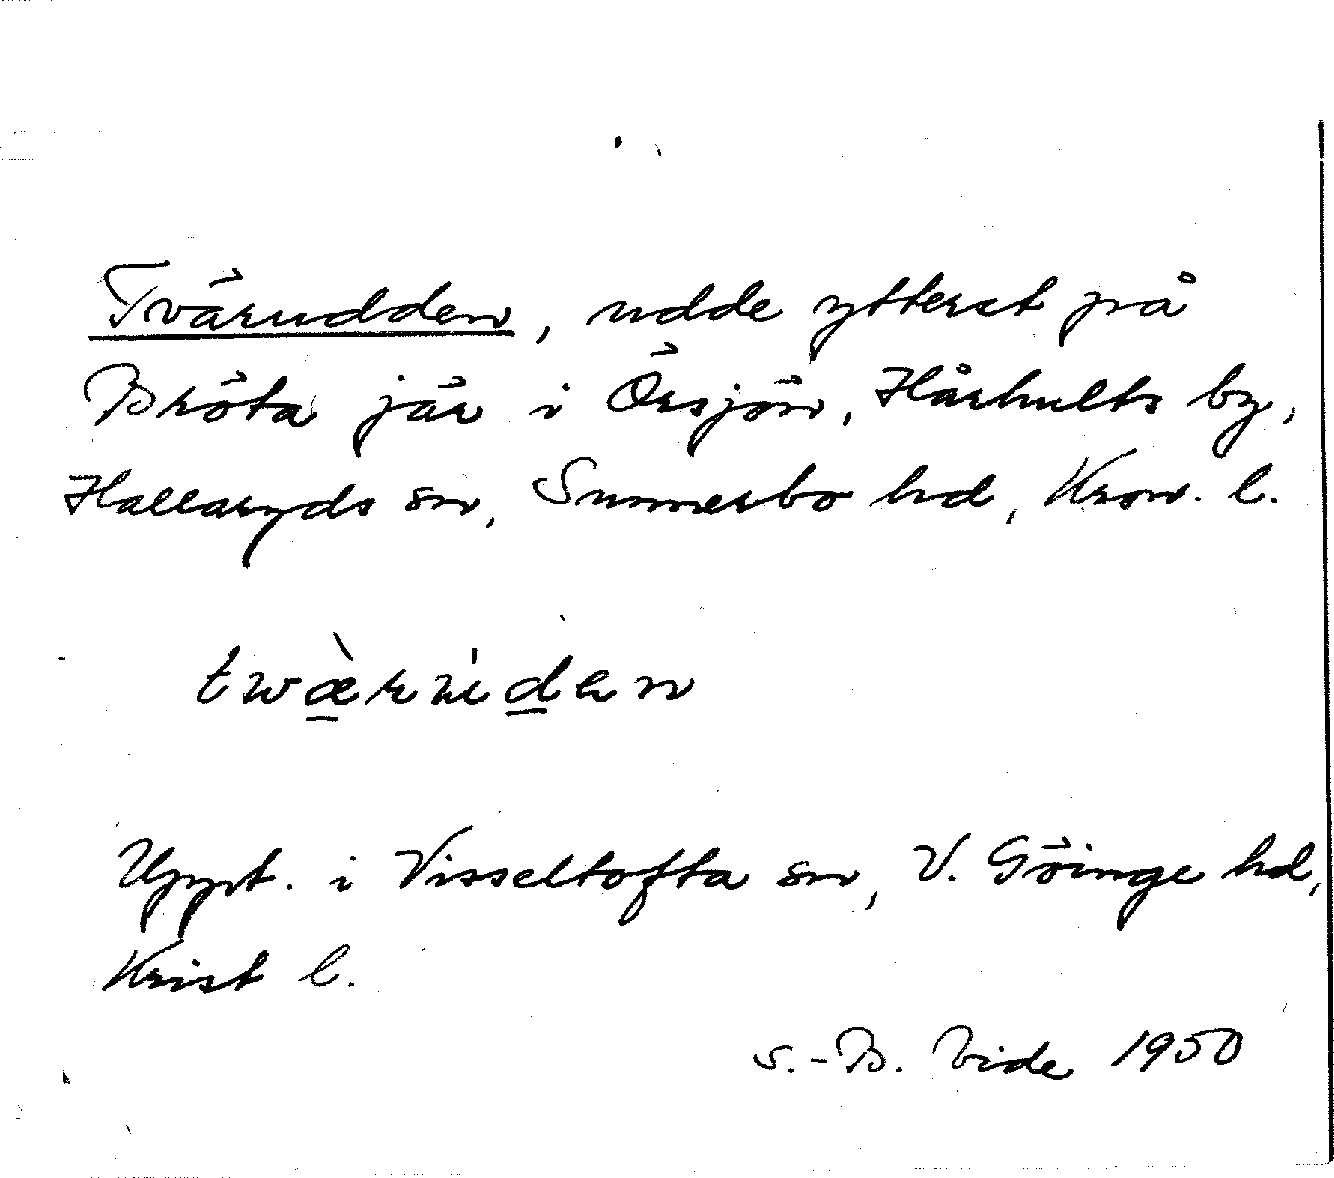 Tvärudden, udde ytterst på
Bröta jär i Örsjön, Hårhults by,
Hallaryds sn, Sunnerbo hd, Kron. l.
Uppt. i Visseltofta sn, V. Göinge hd,
Krist l.
S.-B. Vide 1950